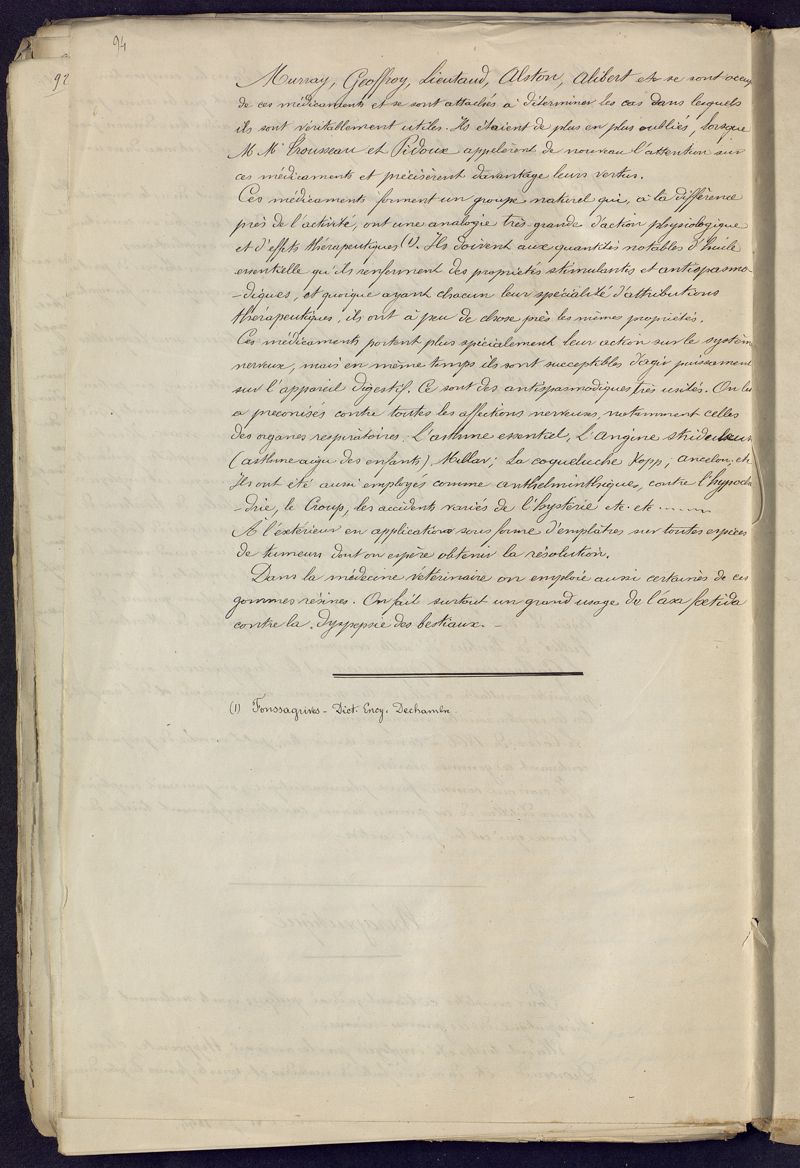 94
92
Murray, Geoffroy, Lieutaud, Alston, Alibert etc se sont occup
de ces médicaments et se sont attachés à déterminer les cas dans lesquels
ils sont véritablement utiles. Ils étaient de plus en plus oubliés, lorsque
M M Trousseau et Pidoux appelèrent de nouveau l'attention sur
ces médicaments et précisèrent davantage leurs vertus.
Ces médicaments forment un groupe naturel qui, à la différence
près de l'activité, ont une analogie très grande d'action physiologique
et d'effets thérapeutiques (1). Ils doivent aux quantités notables d'huile
essentielle qu'ils renferment des propriétés stimulantes et antispasmo-
-diques, et quoique ayant chacun leur spécialité d'attributions
thérapeutiques, ils ont à peu de chose près les mêmes propriétés.
Ces médicaments portent plus spécialement leur action sur le système
nerveux, mais en même temps ils sont susceptibles d'agir puissament
sur l'appareil digestif. Ce sont des antispasmodiques très usités. On les
a préconisés contre toutes les affections nerveuses, notamment celles
des organes respiratoires. L'asthme essentiel, L'angine striduleuse
(asthme aigu des enfants) Millar; La coqueluche Kopp, Ancelon, etc
Ils ont été aussi employés comme anthelminthiques, contre l'hypoch
-drie, le Croup, les accidents variés de l'hystérie etc. etc ......
A l'extérieur en applications sous forme d'emplâtres sur toutes espèces
de tumeurs dont on espère obtenir la résolution.
Dans la médecine vétérinaire on emploie aussi certaines de ces
gommes résines. On fait surtout un grand usage de l'asa fœtida
contre la dyspepsie des bestiaux. -
(1) Fonssagrives - Dict. Ency. Dechambre